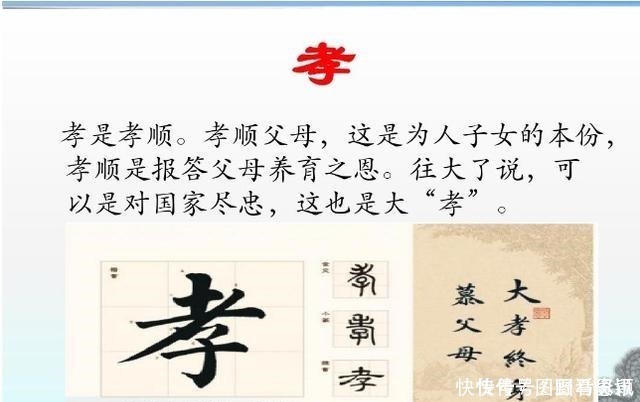 孝
孝是孝顺。孝顺父母，这是为人子女的本份，
孝顺是报答父母养育之恩。往大了说，可
以是对国家尽忠，这也是大“孝”。
楷书
孝
金文
孝
小篆
孝
隶书
孝
大孝终身
慕父母